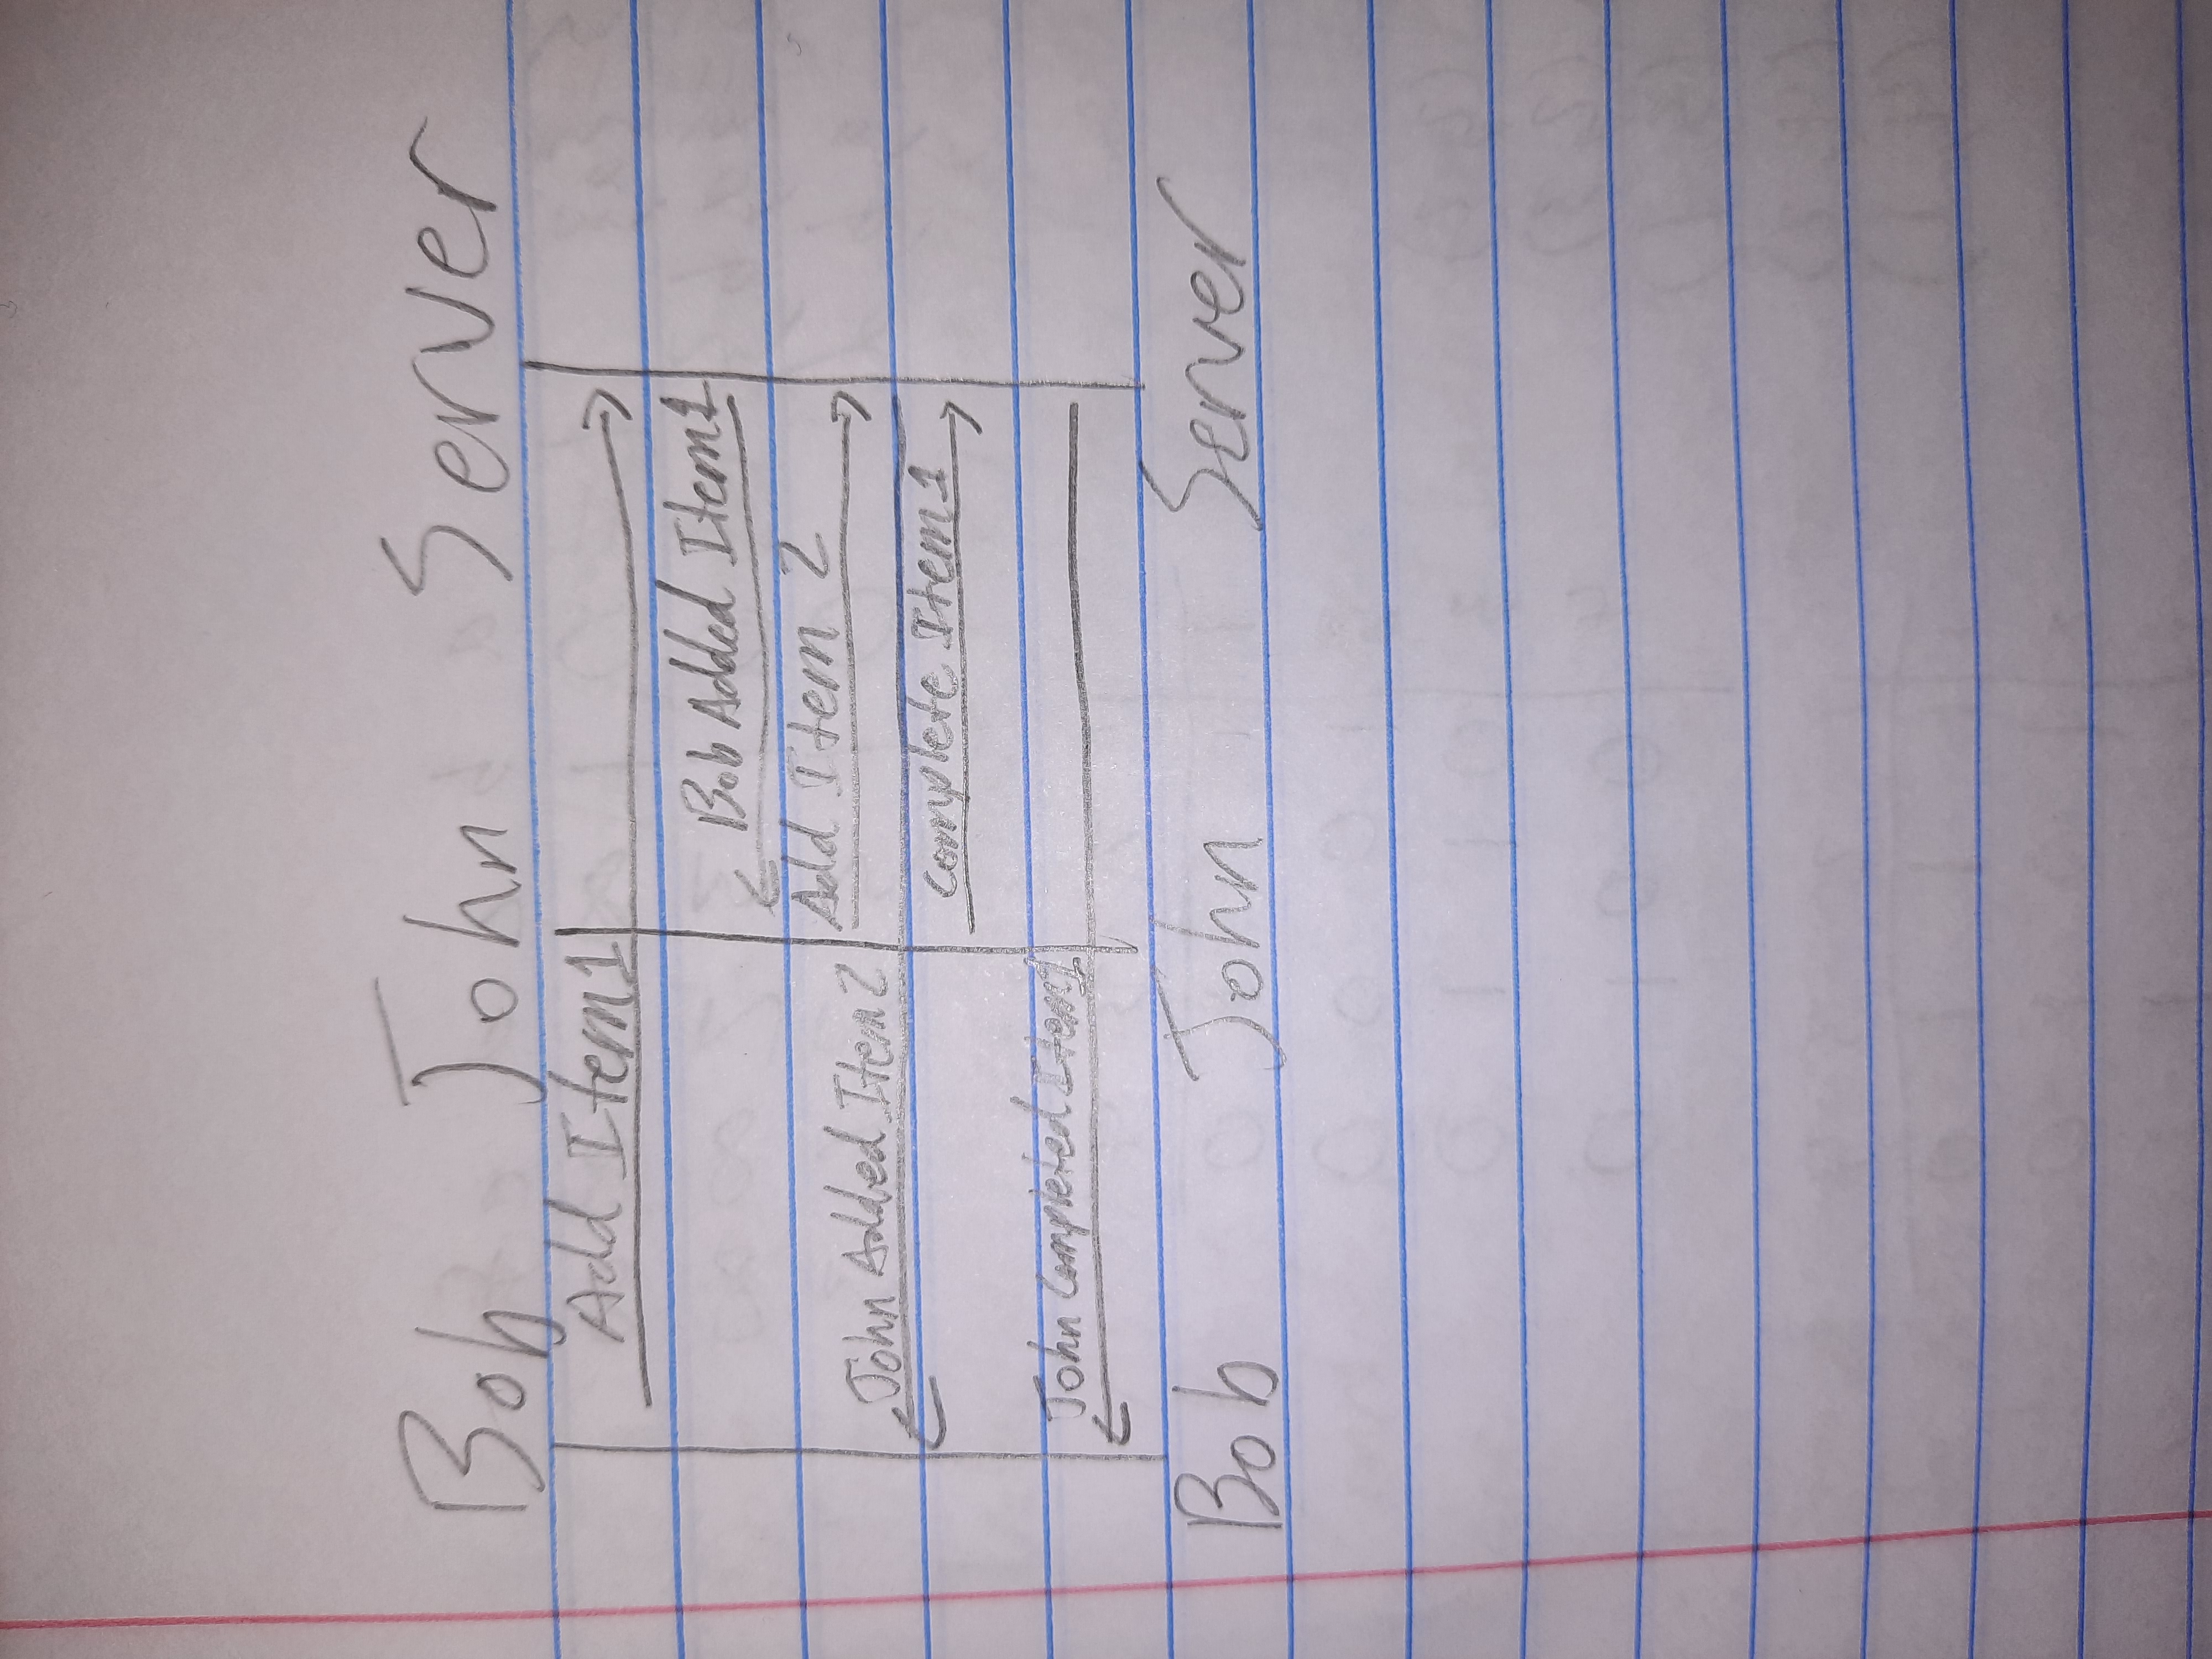 Bob John Server
Add Item1
Bob Added Item1
Add Item 2
John Added Item2
Complete Item1
John Completed Item1
Bob John Server